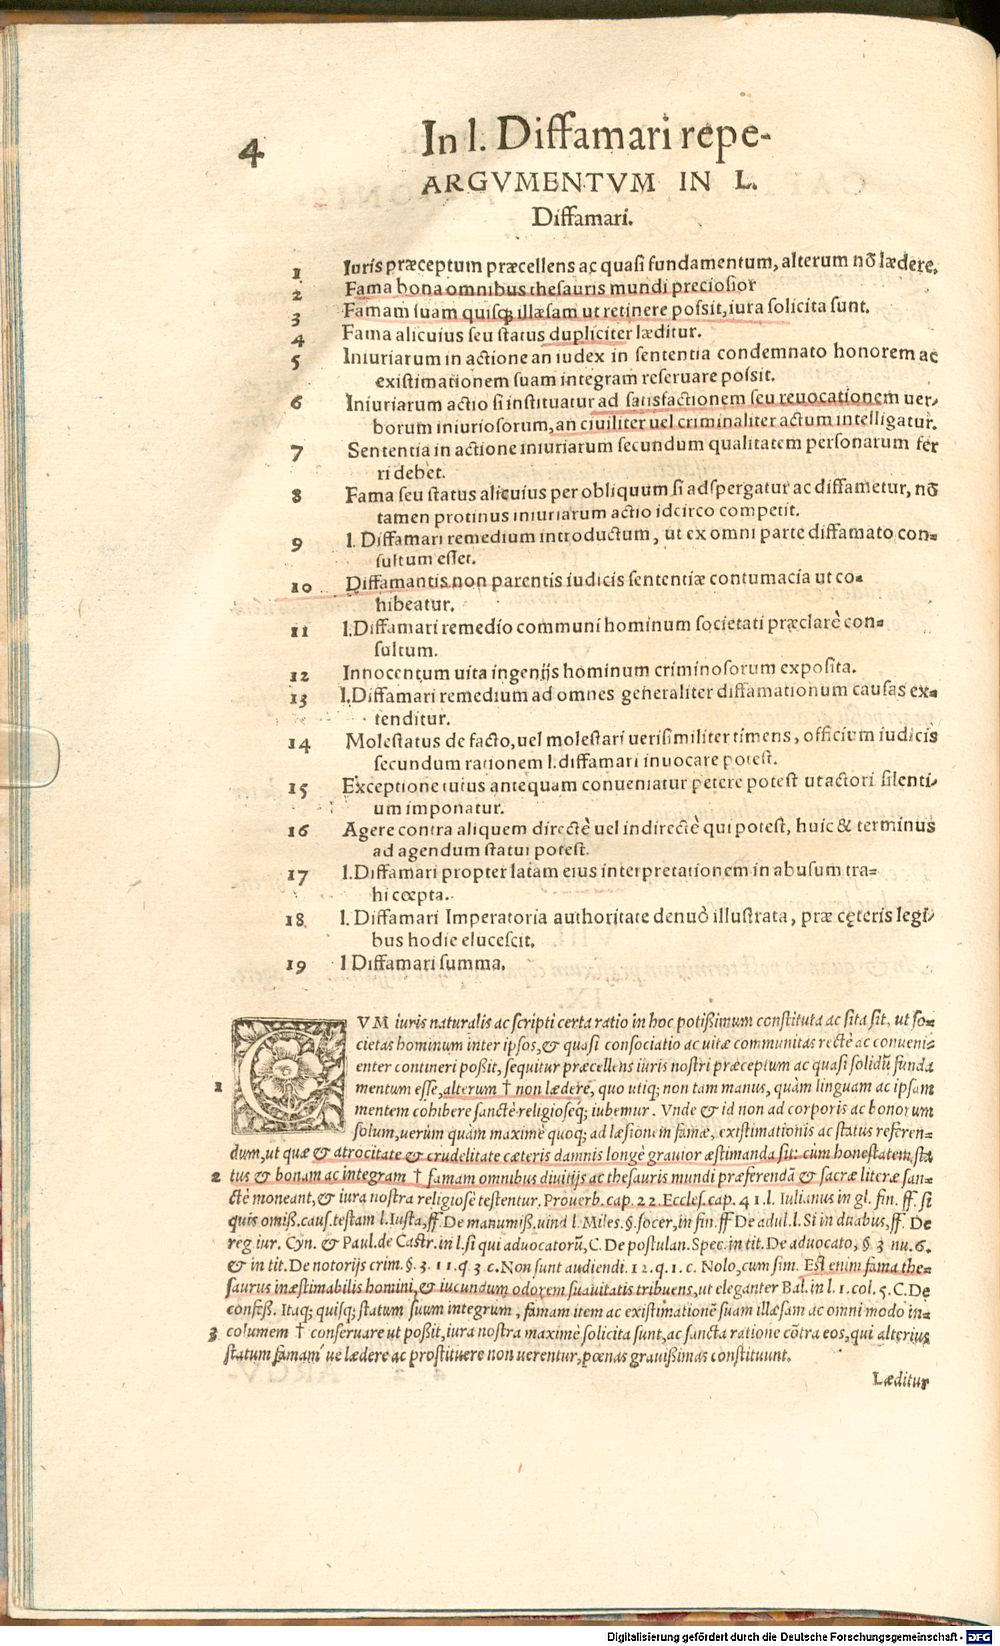 4
In l. Diffamari repe-
ARGVMENTVM IN L.
Diffamari.
1 Iuris præceptum præcellens ac quasi fundamentum, alterum nō lædere.
2 Fama bona omnibus thesauris mundi preciosior
3 Famam suam quisq; illæsam ut retinere possit, iura solicita sunt.
4 Fama alicuius seu status dupliciter læditur.
5 Iniuriarum in actione an iudex in sententia condemnato honorem ac
existimationem suam integram reseruare possit.
6 Iniuriarum actio si instituatur ad satisfactionem seu reuocationem uer-
borum iniuriosorum, an ciuiliter uel criminaliter actum intelligatur.
7 Sententia in actione iniuriarum secundum qualitatem personarum fer
ri debet.
8 Fama seu status alicuius per obliquum si adspergatur ac diffametur, nō
tamen protinus iniuriarum actio idcirco competit.
9 l. Diffamari remedium introductum, ut ex omni parte diffamato con-
sultum esset.
10 Diffamantis non parentis iudicis sententiæ contumacia ut co-
hibeatur.
11 l. Diffamari remedio communi hominum societati præclarè con-
sultum.
12 Innocentum uita ingenijs hominum criminosorum exposita.
13 l. Diffamari remedium ad omnes generaliter diffamationum causas ex-
tenditur.
14 Molestatus de facto, uel molestari uerisimiliter timens, officium iudicis
secundum rationem l. diffamari inuocare potest.
15 Exceptione tutus antequam conueniatur petere potest ut actori silenti-
um imponatur.
16 Agere contra aliquem directè uel indirectè qui potest, huic & terminus
ad agendum statui potest.
17 l. Diffamari propter latam eius interpretationem in abusum tra-
hi cœpta.
18 l. Diffamari Imperatoria authoritate denuò illustrata, præ cęteris legi-
bus hodie elucescit.
19 l Diffamari summa.
CVM iuris naturalis ac scripti certa ratio in hoc potißimum constituta ac sita sit, ut so-
cietas hominum inter ipsos, & quasi consociatio ac uitæ communitas rectè ac conueni-
enter contineri poßit, sequitur præcellens iuris nostri præceptum ac quasi solidũ funda
1 mentum esse, alterum † non lædere, quo utiq; non tam manus, quàm linguam ac ipsam
mentem cohibere sanctè religioseq́; iubemur. Vnde & id non ad corporis ac bonorum
solum, uerùm quàm maximè quoq; ad læsionem famæ, existimationis ac status referen-
dum, ut quæ & atrocitate & crudelitate cæteris damnis longè grauior æstimanda sit: cùm honestatem, sta
2 tus & bonam ac integram † famam omnibus diuitijs ac thesauris mundi præferendã & sacræ literæ san-
ctè moneant, & iura nostra religiosè testentur. Prouerb. cap. 22. Eccles. cap. 41. l. Iulianus in gl. fin. ff. si
quis omiß. caus. testam l. Iusta, ff. De manumiß. uind l. Miles. §. socer, in fin. ff De adul. l. Si in duabus, ff. De
reg iur. Cyn. & Paul. de Castr. in l. si qui aduocatorũ, C. De postulan. Spec. in tit. De aduocato, §. 3 nu. 6.
& in tit. De notorijs crim. §. 3. 11. q. 3 c. Non sunt audiendi. 12. q. 1. c. Nolo, cum sim. Est enim fama the-
saurus inæstimabilis homini, & iucundum odorem suauitatis tribuens, ut eleganter Bal. in l. 1. col. 5. C. De
confeß. Itaq; quisq; statum suum integrum, famam item ac existimationē suam illæsam ac omni modo in-
3 columem † conseruare ut poßit, iura nostra maximè solicita sunt, ac sancta ratione cōtra eos, qui alterius
statum famam ue lædere ac prostituere non uerentur, pœnas grauißimas constituunt.
Læditur
Digitalisierung gefördert durch die Deutsche Forschungsgemeinschaft - DFG